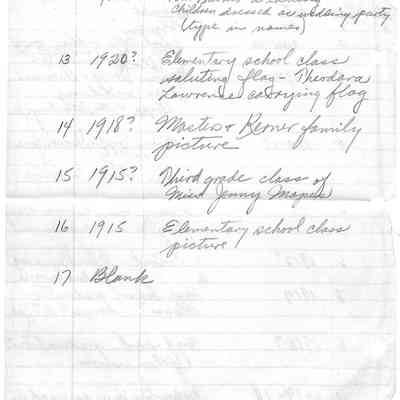 Children dressed as wedding party
(type in names)
13 1920? Elementary school class
saluting flag - Theodora
Lawrence carrying flag
14 1918? Masters & Kerner family
picture
15 1915? Third grade class of
Miss Jenny Mapes
16 1915 Elementary school class
picture
17 Blank